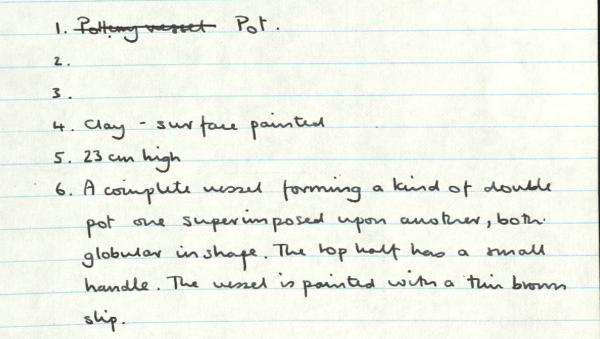 1. Pottery vessel Pot.
2.
3.
4. Clay - surface painted
5. 23 cm high
6. A complete vessel forming a kind of double
pot one superimposed upon another, both
globular in shape. The top half has a small
handle. The vessel is painted with a thin brown
slip.